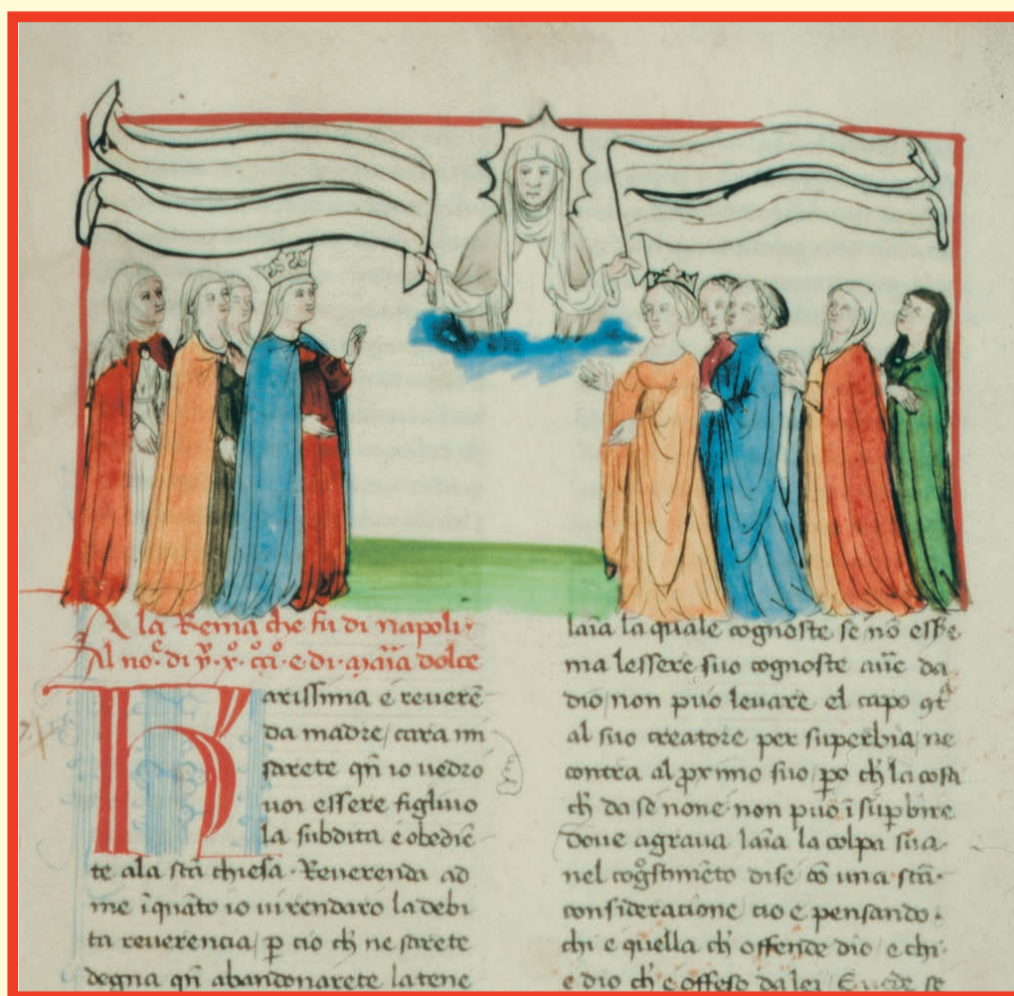 A la Reina che fu di napoli.
Al no.e di y.o x.o cc.o e di maia dolce
Karissima e reverē
da madre / cara mi
sarete qn̄ io vedro
voi essere figliuo
la subdita e obediē
te ala scā chiesa. Reverenda ad
me ī quāto io vi rendaro la debi
ta reverencia / p cio ch ne sarete
degna qn̄ abandonarete la tene
laīa la quale cognosce se nō esse
ma lessere suo cognosce ave da
dio / non puo levare el capo
al suo creatore per superbia / ne
contra al proximo suo / po ch la cosa
ch da se none non puo ī supbire
dove agrava laīa la colpa sua.
nel cogoscimēto di se cō una scā.
consideratione cio e pensando.
chi e quella ch offende dio / e chi
e dio ch e offeso da lei / E vede se